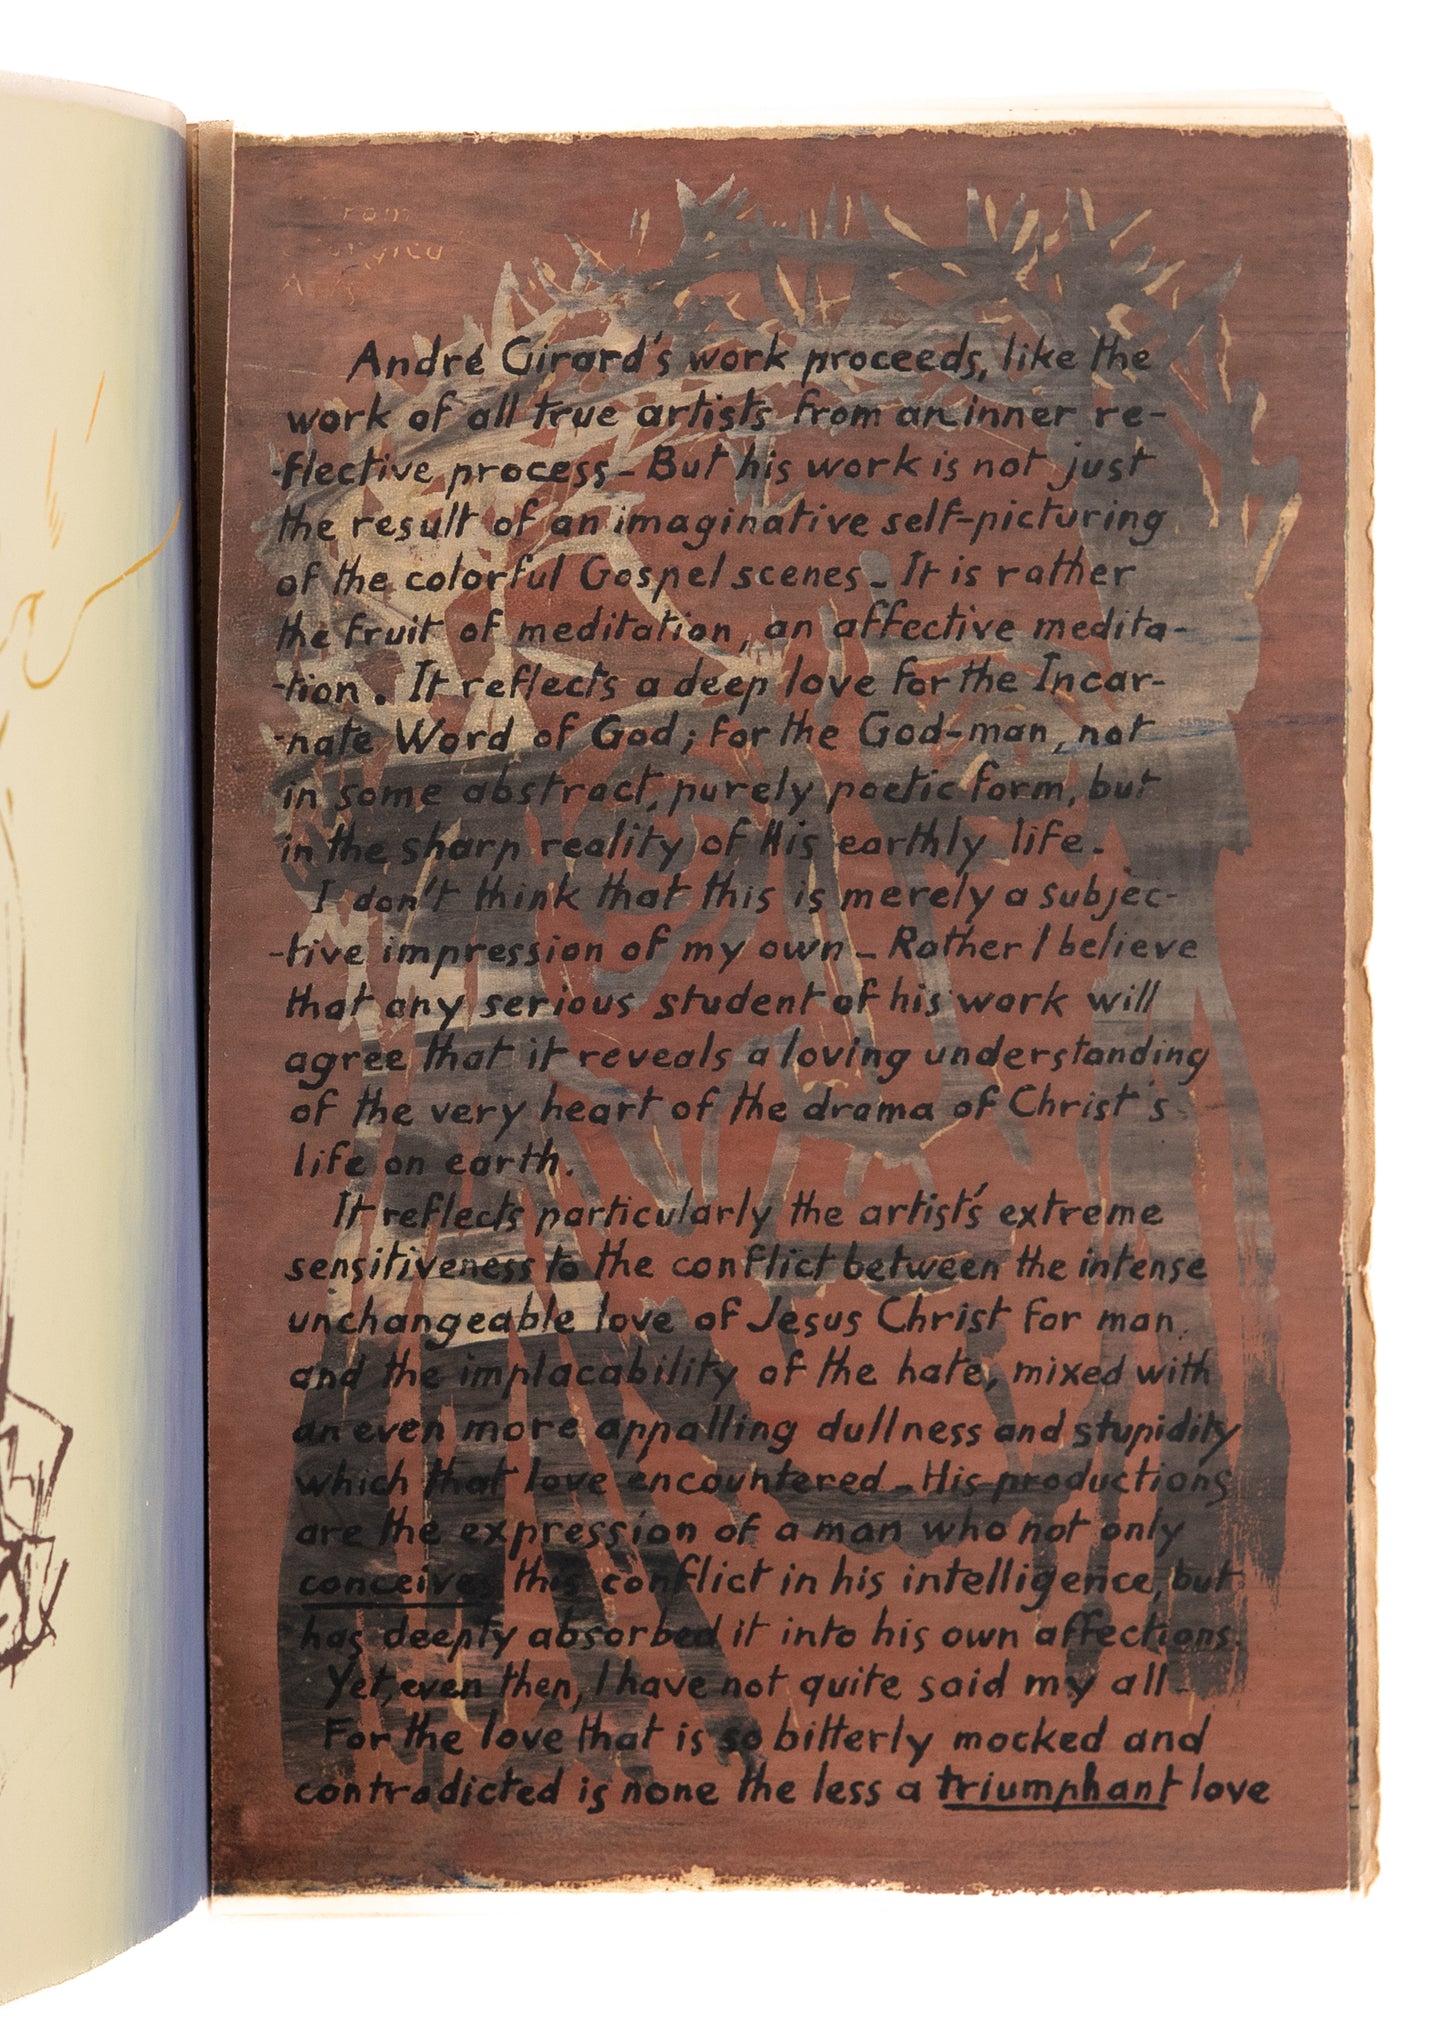 André Girard's work proceeds, like the
work of all true artists from an inner re-
-flective process - But his work is not just
the result of an imaginative self-picturing
of the colorful Gospel scenes - It is rather
the fruit of meditation, an affective medita-
-tion. It reflects a deep love for the Incar-
-nate Word of God; for the God-man, not
in some abstract, purely poetic form, but
in the sharp reality of His earthly life.
I don't think that this is merely a subjec-
-tive impression of my own - Rather I believe
that any serious student of his work will
agree that it reveals a loving understanding
of the very heart of the drama of Christ's
life on earth.
It reflects particularly the artist's extreme
sensitiveness to the conflict between the intense
unchangeable love of Jesus Christ for man
and the implacability of the hate, mixed with
an even more appalling dullness and stupidity
which that love encountered - His productions
are the expression of a man who not only
conceives this conflict in his intelligence, but
has deeply absorbed it into his own affections.
Yet, even then, I have not quite said my all -
For the love that is so bitterly mocked and
contradicted is none the less a triumphant love